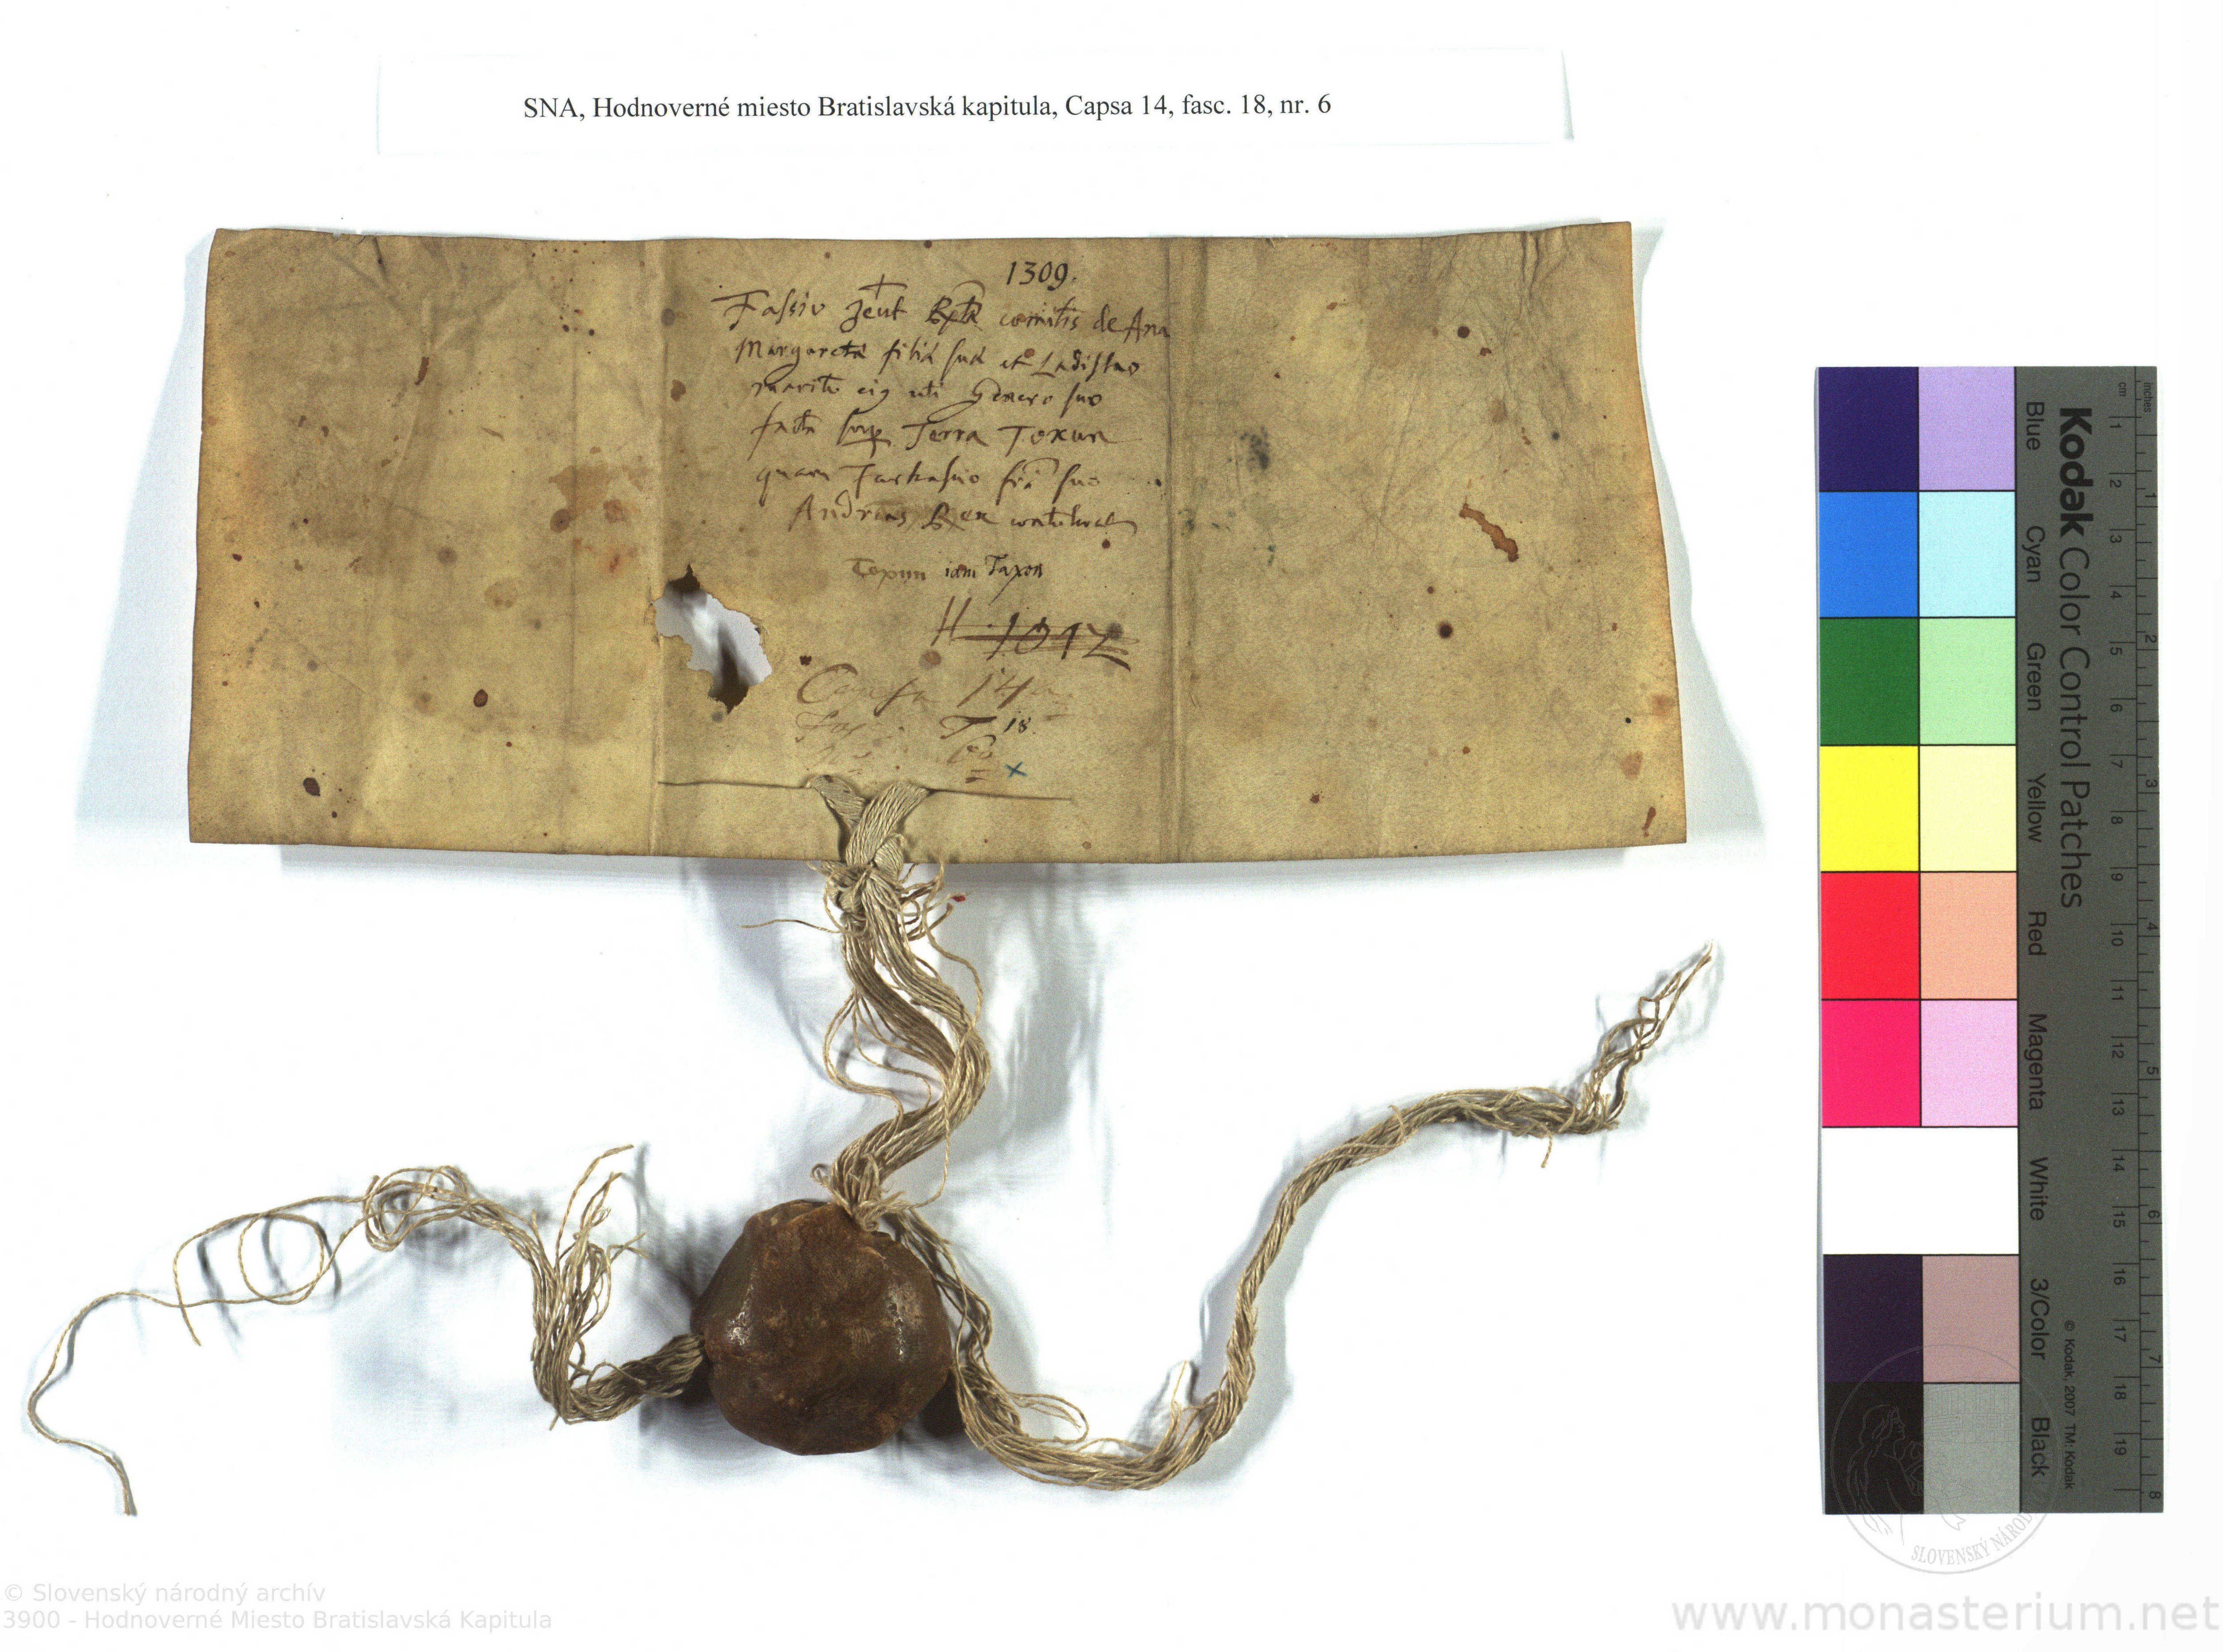 SNA, Hodnoverné miesto Bratislavská kapitula, Capsa 14, fasc. 18, nr. 6
1309.
Fassio comitis de Ana
Margareta filia sua et Ladislao
marito ei9 uti Genero suo
facta sup Terra Toxun
quam Farkasio suo
Andreas Rex
Toxun iam Taxon
H. 1012
Capsa 14
Fas. 18.
No 6
x
Kodak Color Control Patches
Blue
Cyan
Green
Yellow
Red
Magenta
White
3/Color
Black
© Kodak, 2007 TM: Kodak
cm 1 2 3 4 5 6 7 8 9 10 11 12 13 14 15 16 17 18 19
inches 1 2 3 4 5 6 7 8
SLOVENSKÝ NÁROD
© Slovenský národný archív
3900 - Hodnoverné Miesto Bratislavská Kapitula
www.monasterium.net